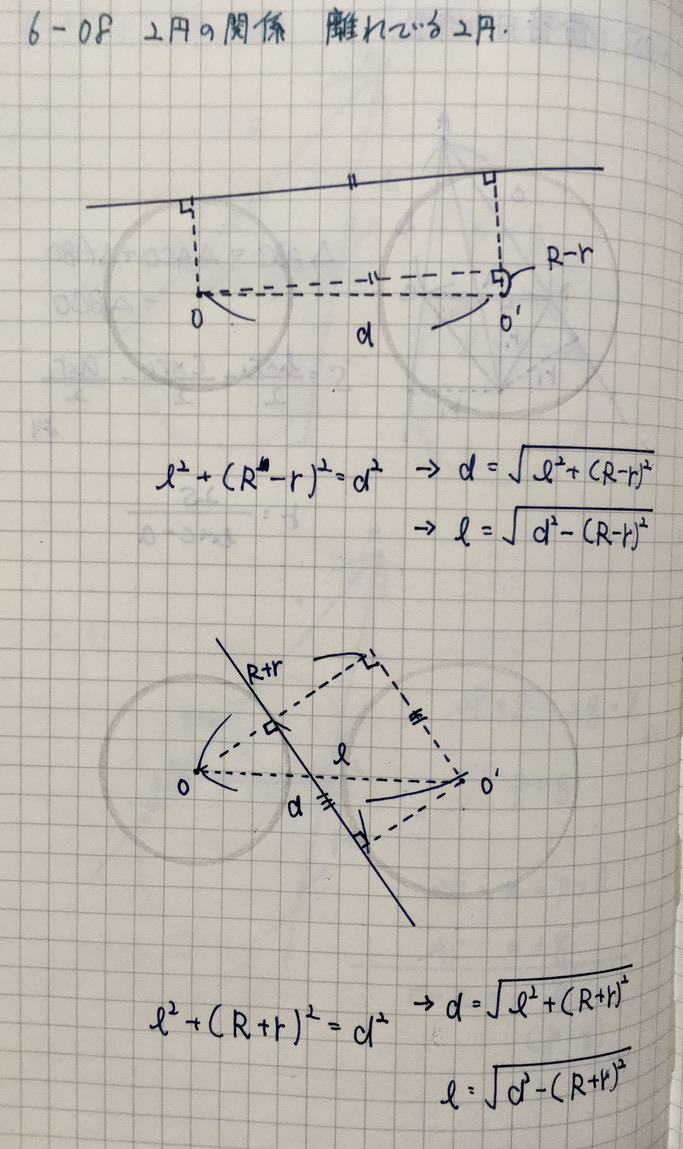 6-08 2円の関係 離れている2円.
R-r
O
O'
d
l²+(R-r)²=d² → d=√l²+(R-r)²
→ l=√d²-(R-r)²
R+r
l
O
O'
d
l²+(R+r)²=d² → d=√l²+(R+r)²
l=√d²-(R+r)²